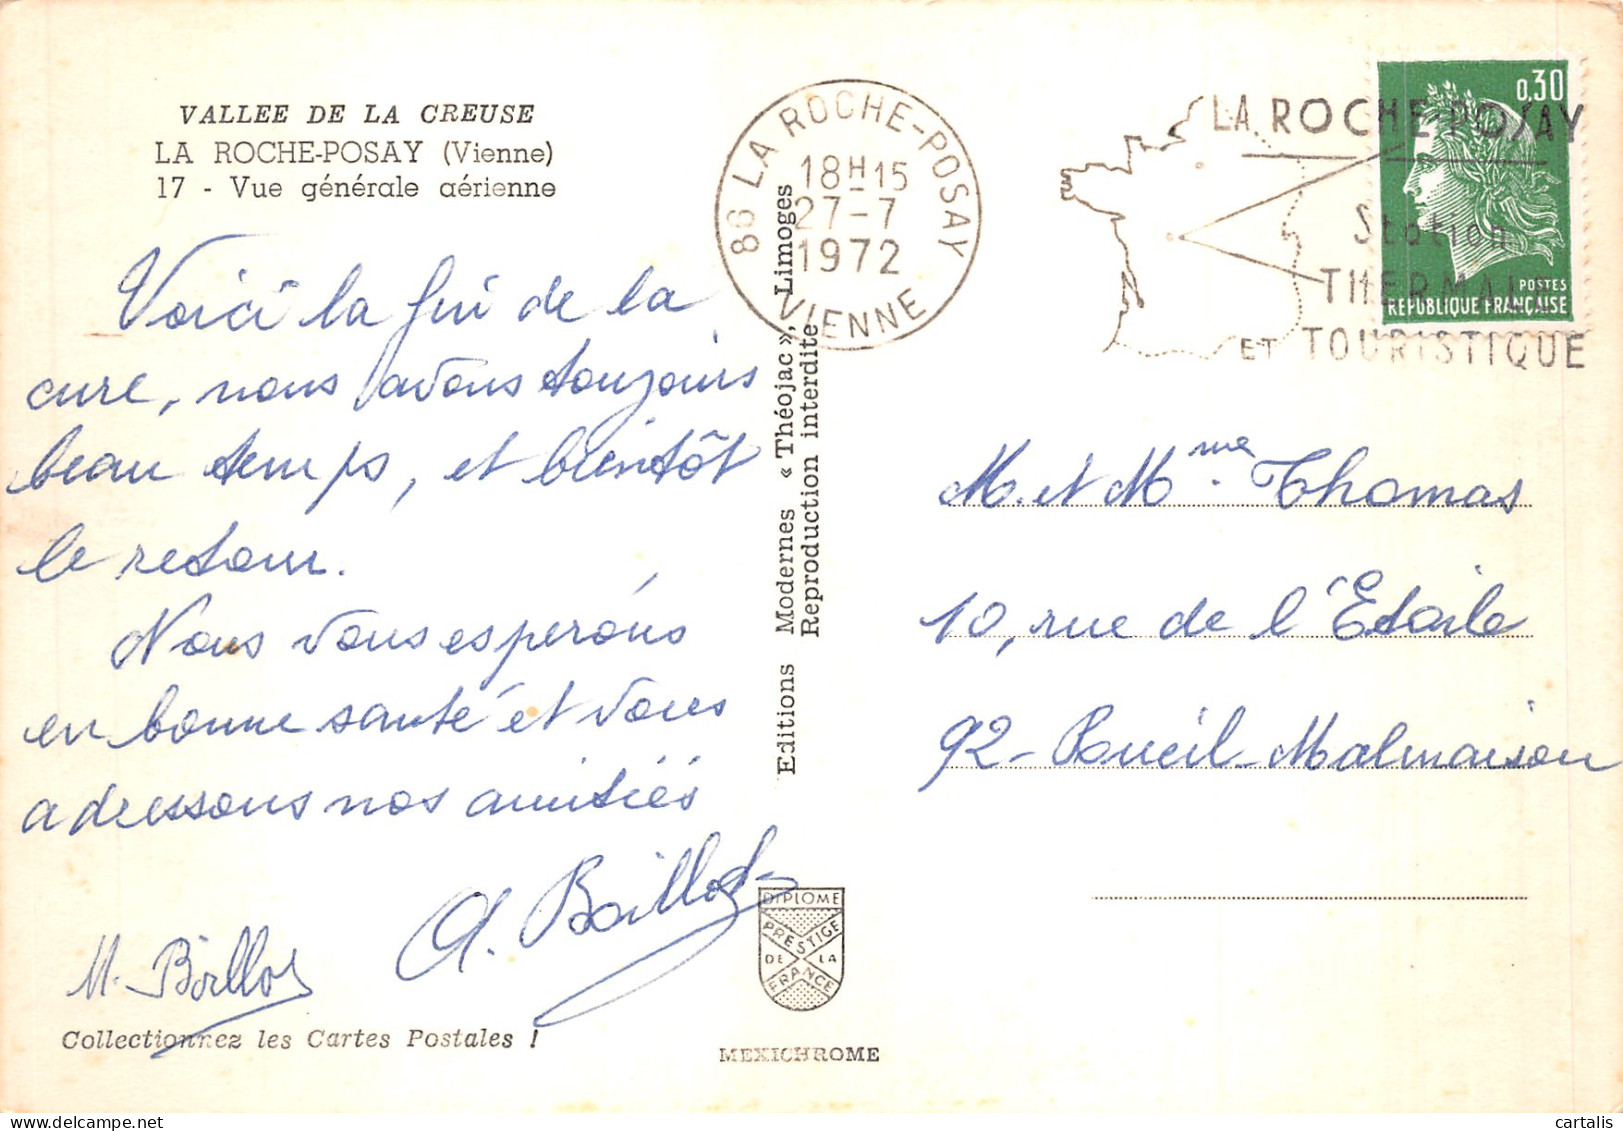 VALLEE DE LA CREUSE
LA ROCHE-POSAY (Vienne)
17 - Vue générale aérienne
Voici la fin de la
cure, nous avons toujours
beau temps, et bientôt
le retour.
Nous vous espérons
en bonne santé et vous
adressons nos amitiés
A. Baillot
M. Baillot
Collectionnez les Cartes Postales !
Editions Modernes « Théojac », Limoges
Reproduction interdite
DIPLOME
PRESTIGE
DE LA
FRANCE
MEXICHROME
86 LA ROCHE-POSAY
18H15
27-7
1972
VIENNE
LA ROCHE-POSAY
Station
THERMALE
ET TOURISTIQUE
0,30
POSTES
REPUBLIQUE FRANÇAISE
M. et Mme Thomas
10, rue de l'Etoile
92- Rueil-Malmaison
cartalis